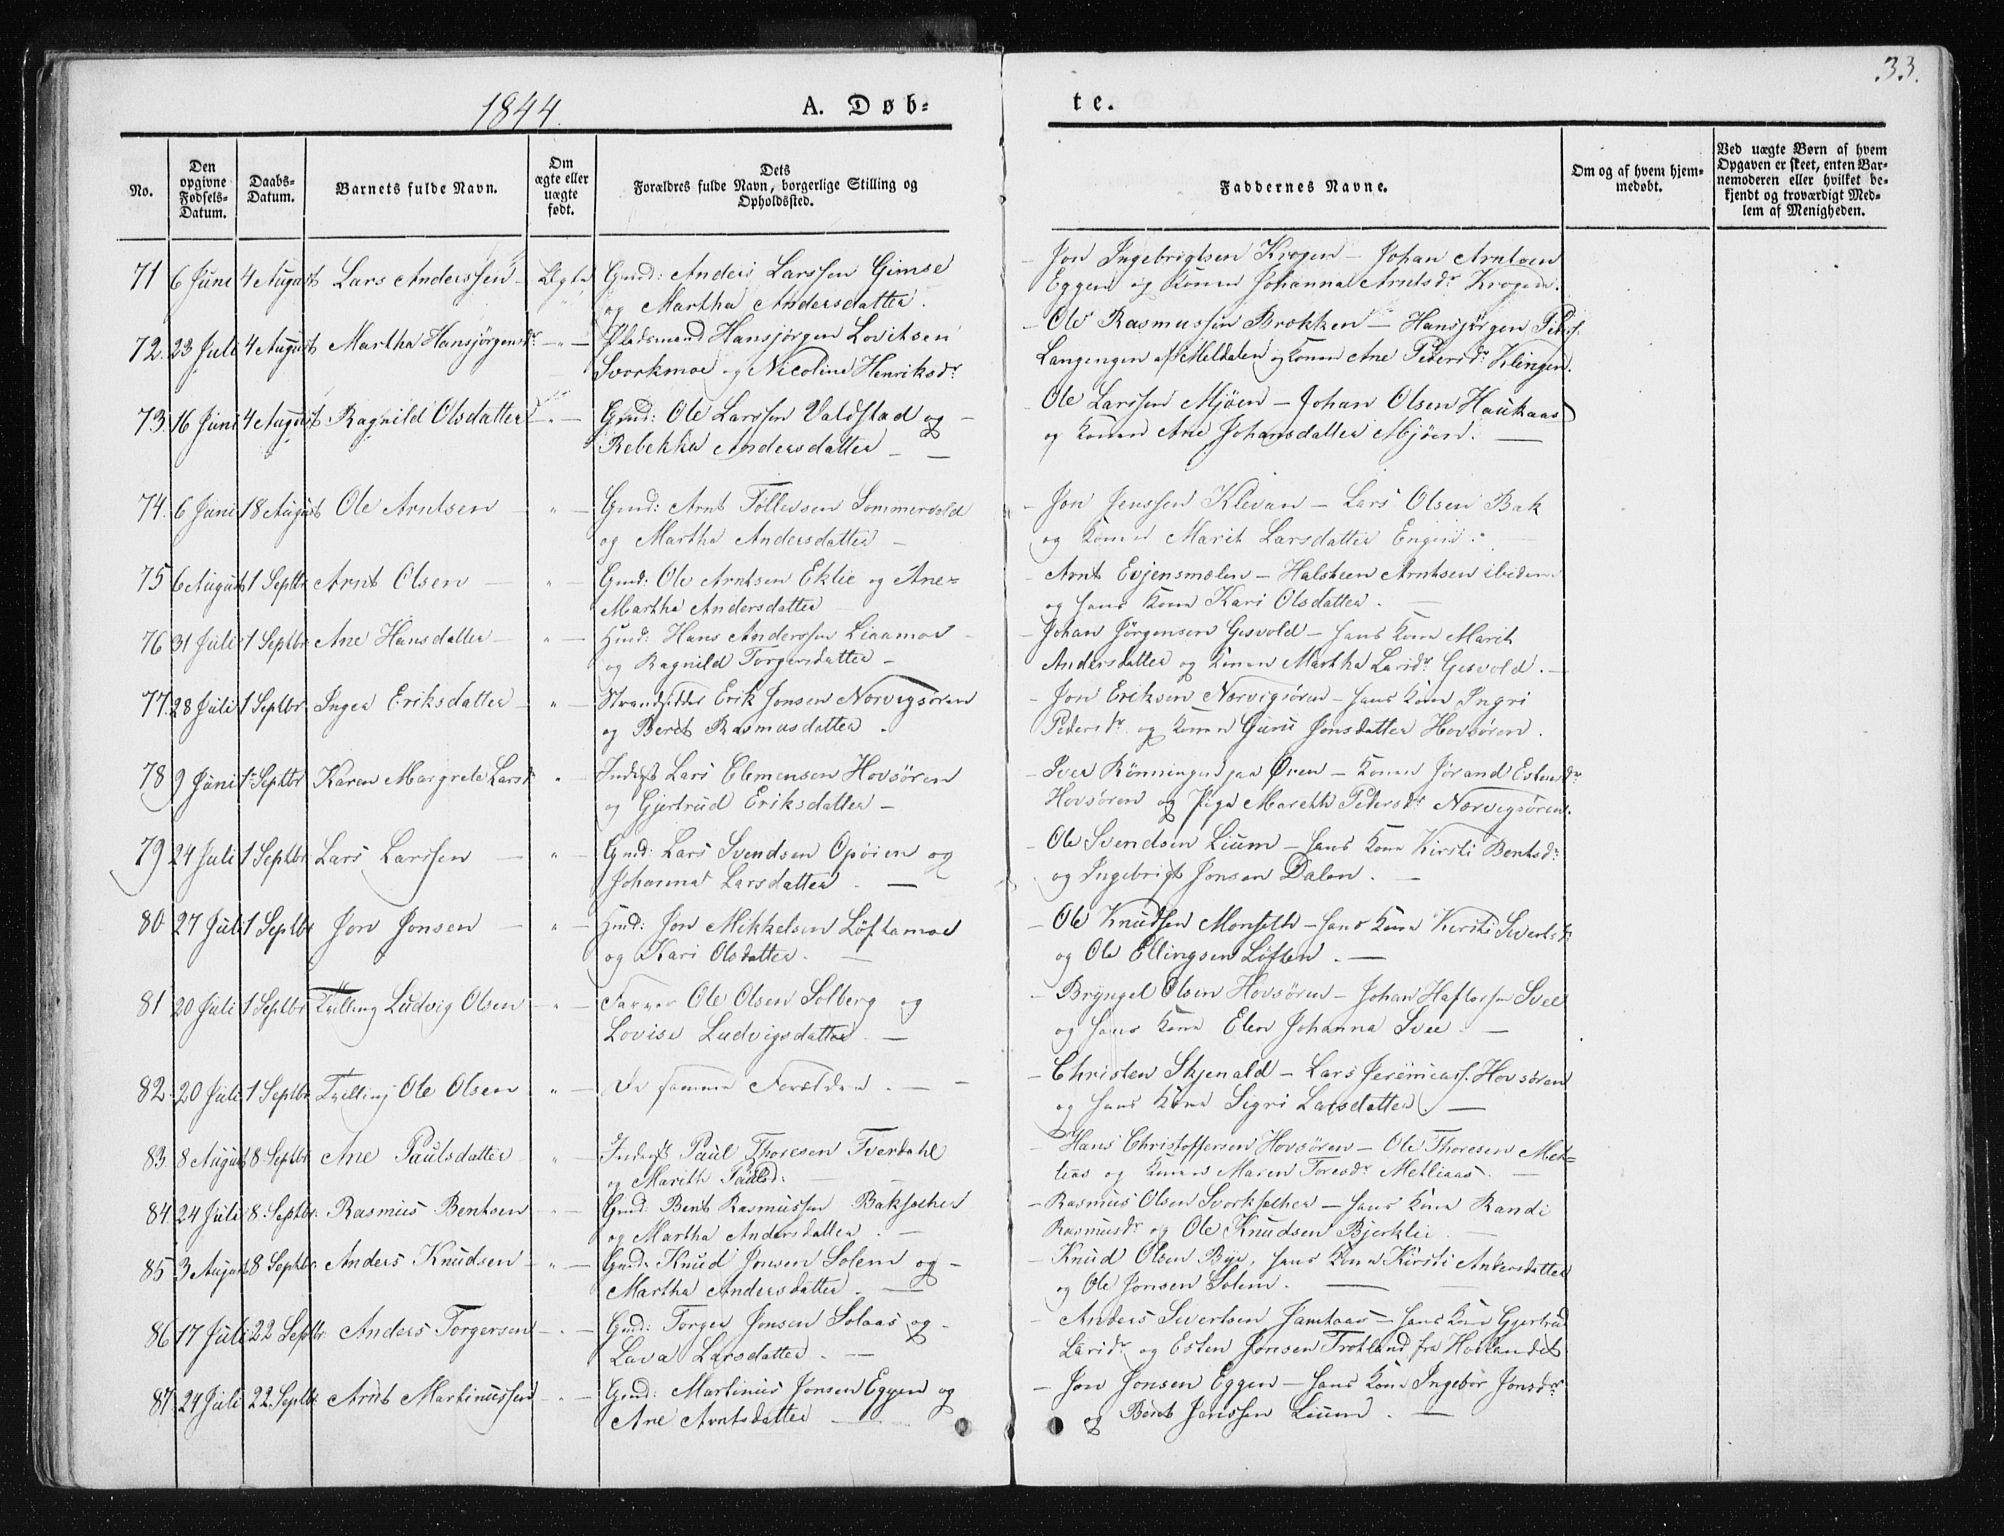 33.
1844.
A. Døb-
te.
No.
Den opgivne Fødsels-Datum.
Daabs-Datum.
Barnets fulde Navn.
Om ægte eller uægte født.
Dets Forældres fulde Navn, borgerlige Stilling og Opholdssted.
Faddernes Navne.
Om og af hvem hjemmedøbt.
Ved uægte Børn af hvem Opgaven er skeet, enten Barnemoderen eller hvilket bekjendt og troværdigt Medlem af Menigheden.
71 6 Juni 4 August Lars Anderssen - Ægte Gmd: Anders Larssen Gimse - Jon Ingebrigtsen Krogen - Johan Arntsen
og Martha Andersdatter. Eggen og Konen Johanna Arntsdr Krogen.
72. 23 Juli 4 August Martha Hansjørgensdr - " - Pladsmand Hansjørgen Lovitsen - Ole Rasmussen Brokken - Hansjørgen Peders.
Svorkmoe og Nicoline Henriksdr Langengen af Meldalen og Konen Ane Pedersdr Klingen.
73. 16 Juni 4 August Ragnild Olsdatter - " - Gmd: Ole Larssen Valdstad og - - Ole Larssen Mjøen - Johan Olsen Haukaas
Rebekka Andersdatter - og Konen Ane Johansdatter Mjøen. -
74. 6 Juni 18 August Ole Arntsen - " - Gmd: Arnt Tøllevsen Sommervold - Jon Jenssen Klevan - Lars Olsen Bak
og Martha Andersdatter - og Konen Marit Larsdatter Engen.
75 6 August 1 Septbr Arnt Olsen - " - Gmd: Ole Arntsen Eklie og Ane- - Arnt Evjensmælen - Halsteen Arntsen ibidem
Martha Andersdatter - og hans Kone Kari Olsdatter. -
76 31 Juli 1 Septbr Ane Hansdatter - " - Huusmd: Hans Anderssen Liaamoe - - Johan Jørgensen Gisvold - hans Kone Marit
og Ragnild Torgersdatter - Andersdatter og Konen Martha Larsdr Gisvold. -
77. 28 Juli 1 Septbr Inger Eriksdatter - " - Strandsidder Erik Jonsen Norvigsøren - Jon Eriksen Norvigsøren - hans Kone Ingri
og Berit Rasmusdatter. Pedersdr og Konen Guru Jonsdatter Hovsøren.
78 9 Juni 1 Septbr Karen Margrete Larsdr " - Inderst Lars Clemensen Hovsøren - Iver Rønningen paa Øren - Konen Jørand Estensdr
og Gjertrud Eriksdatter - Hovsøren og Pige Marith Pedersdr Norvigsøren.
79 24 Juli 1 Septbr Lars Larssen - " - Gmd: Lars Svendsen Opøien og - Ole Svendsen Lium - hans Kone Kirsti Bentsdr
Johanna Larsdatter. - og Ingebrigt Jonsen Dalen. -
80 27 Juli 1 Septbr Jon Jonsen - " - Huusmd: Jon Mikkelsen Løftamoe - Ole Knudsen Monseth - hans Kone Kirsti Sivertsdr
og Kari Olsdatter. - og Ole Ellingsen Løften. -
81 20 Juli 1 Septbr Tvilling Ludvig Olsen - " - Farver Ole Olsen Solberg og - Bryngel Olsen Hovsøren - Johan Haftorsen Svee
Lovise Ludvigsdatter. - og hans Kone Elen Johanna Svee. -
82. 20 Juli 1 Septbr Tvilling Ole Olsen " - De samme Forældre. - - - Christen Skjenald - Lars Jeremiass. Hovsøren
og hans Kone Sigri Larsdatter. -
83. 8 August 8 Septbr Ane Paulsdatter " - Inderst Paul Thoresen Tverdahl - Hans Christoffersen Hovsøren - Ole Thoresen Met-
og Marith Paulsd: - liaas og Konen Maren Toresdr Metliaas. -
84. 24 Juli 8. Septbr. Rasmus Bentsen - " - Gmd: Bent Rasmussen Baksæther - Rasmus Olsen Svorksæther - hans Kone Randi
og Martha Andersdatter. - Rasmusdr og Ole Knudsen Bjerklie. -
85 3 August 8 Septbr. Anders Knudsen - " - Gmd: Knud Jonsen Solem og - - Knud Olsen Bye, hans Kone Kirsti Andersdatter
Martha Andersdatter. - og Ole Jonsen Solem. -
86 17 Juli 22 Septbr. Anders Torgersen - " - Gmd: Torger Jonsen Solaas og - - Anders Sivertsen Jamtaas - hans Kone Gjertrud
Lava Larsdatter. - Larsdr og Esten Jonsen Trotland fra Hollandet
87 24 Juli 22. Septbr. Arnt Martinussen " - Gmd: Martinus Jonsen Eggen og - Jon Jonsen Eggen - hans Kone Ingebor Jonsdr
Ane Arntsdatter - og Bent Jenssen Lium. -